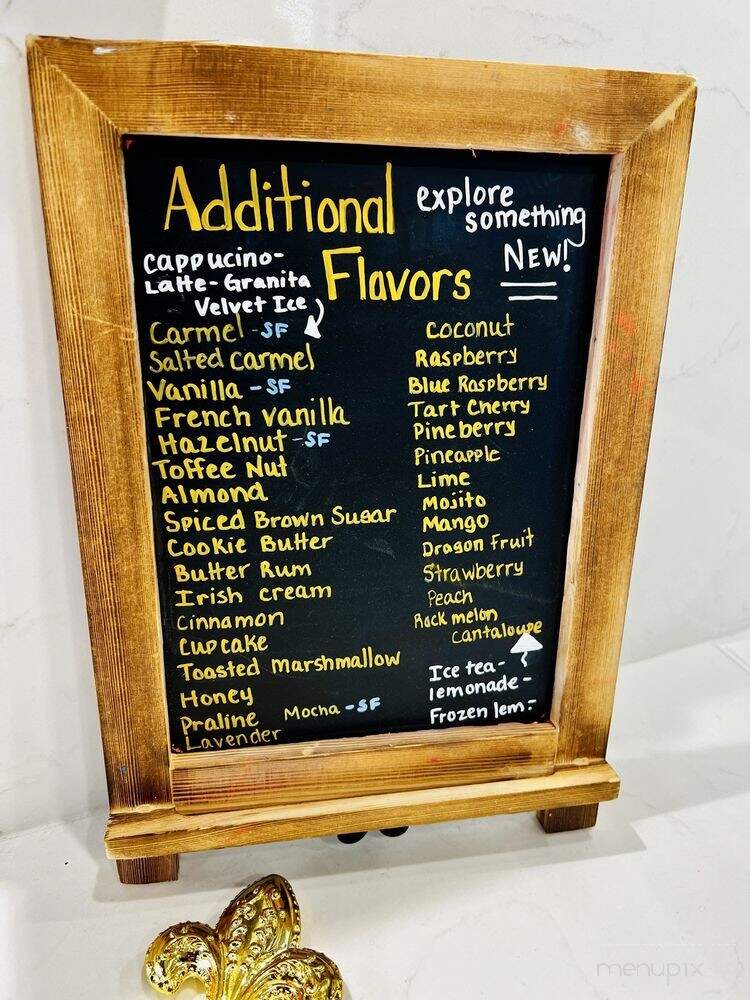 Additional
Flavors
explore
something
NEW!
Cappucino-
Latte-Granita
Velvet Ice
Carmel -SF
Salted Carmel
Vanilla -SF
French vanilla
Hazelnut -SF
Toffee Nut
Almond
Spiced Brown Sugar
Cookie Butter
Butter Rum
Irish cream
Cinnamon
Cupcake
Toasted Marshmallow
Honey
Praline
Mocha -SF
Lavender
Coconut
Raspberry
Blue Raspberry
Tart Cherry
Pineberry
Pineapple
Lime
Mojito
Mango
Dragon Fruit
Strawberry
Peach
Rock melon
Cantaloupe
Ice tea-
lemonade-
Frozen lem-
menupix